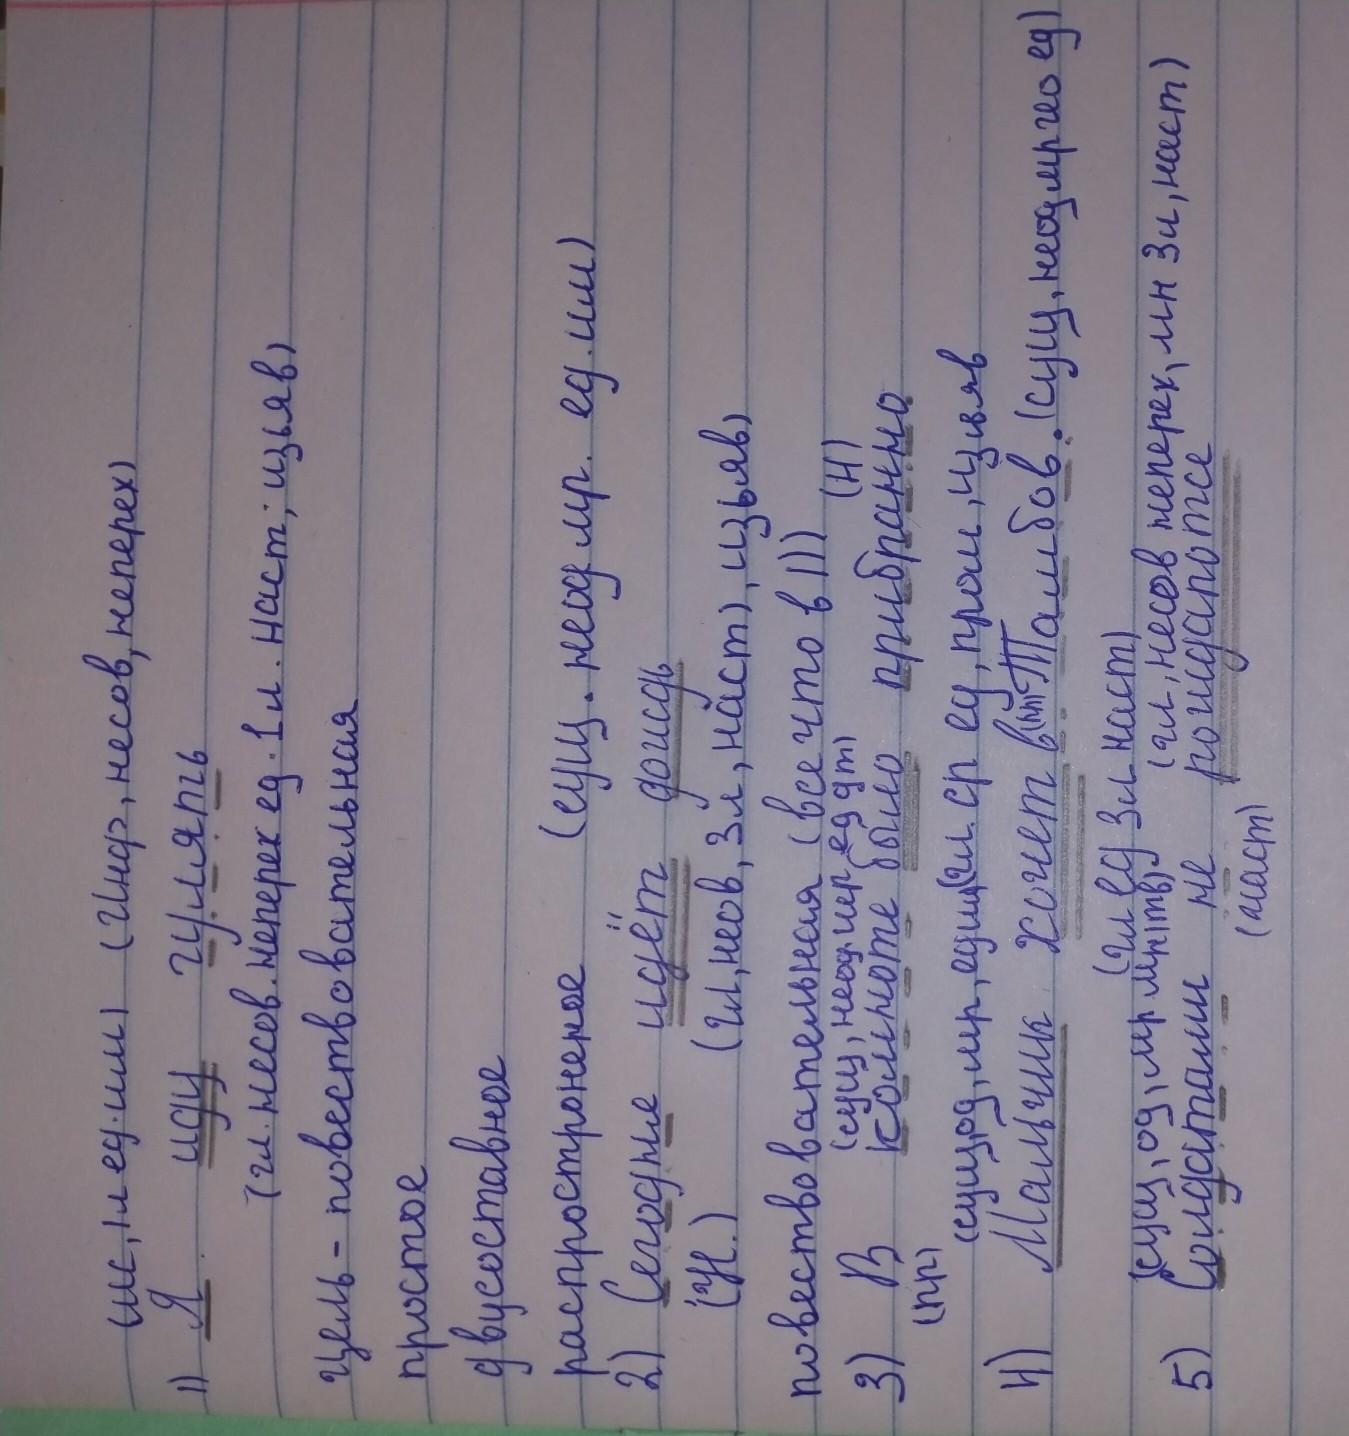 (мс, 1л ед. им) (Инф, несов, неперех)
1) Я иду гулять
(гл. несов. неперех ед. 1 л. наст, изъяв)
цель - повествовательная
простое
двусоставное
распростронёное (сущ. неод мр. ед. им)
2) Сегодня идёт дождь
(н.) (гл, несов, 3л, наст), изъяв)
повествовательная (все что в 1))
(сущ, неод жер ед дт) (н)
3) В комнате было прибранно
(пр) (гл. ср ед, прош, изъяв
(сущ, од, мр, ед им)
4) Мальчик хочет в (пп) Тамбов. (сущ, неод мр гео ед)
(гл ед 3л наст)
(сущ, од, мр мн тв) (гл, несов неперех, мн 3л, наст)
5) Солдатами не рождаются
(част)